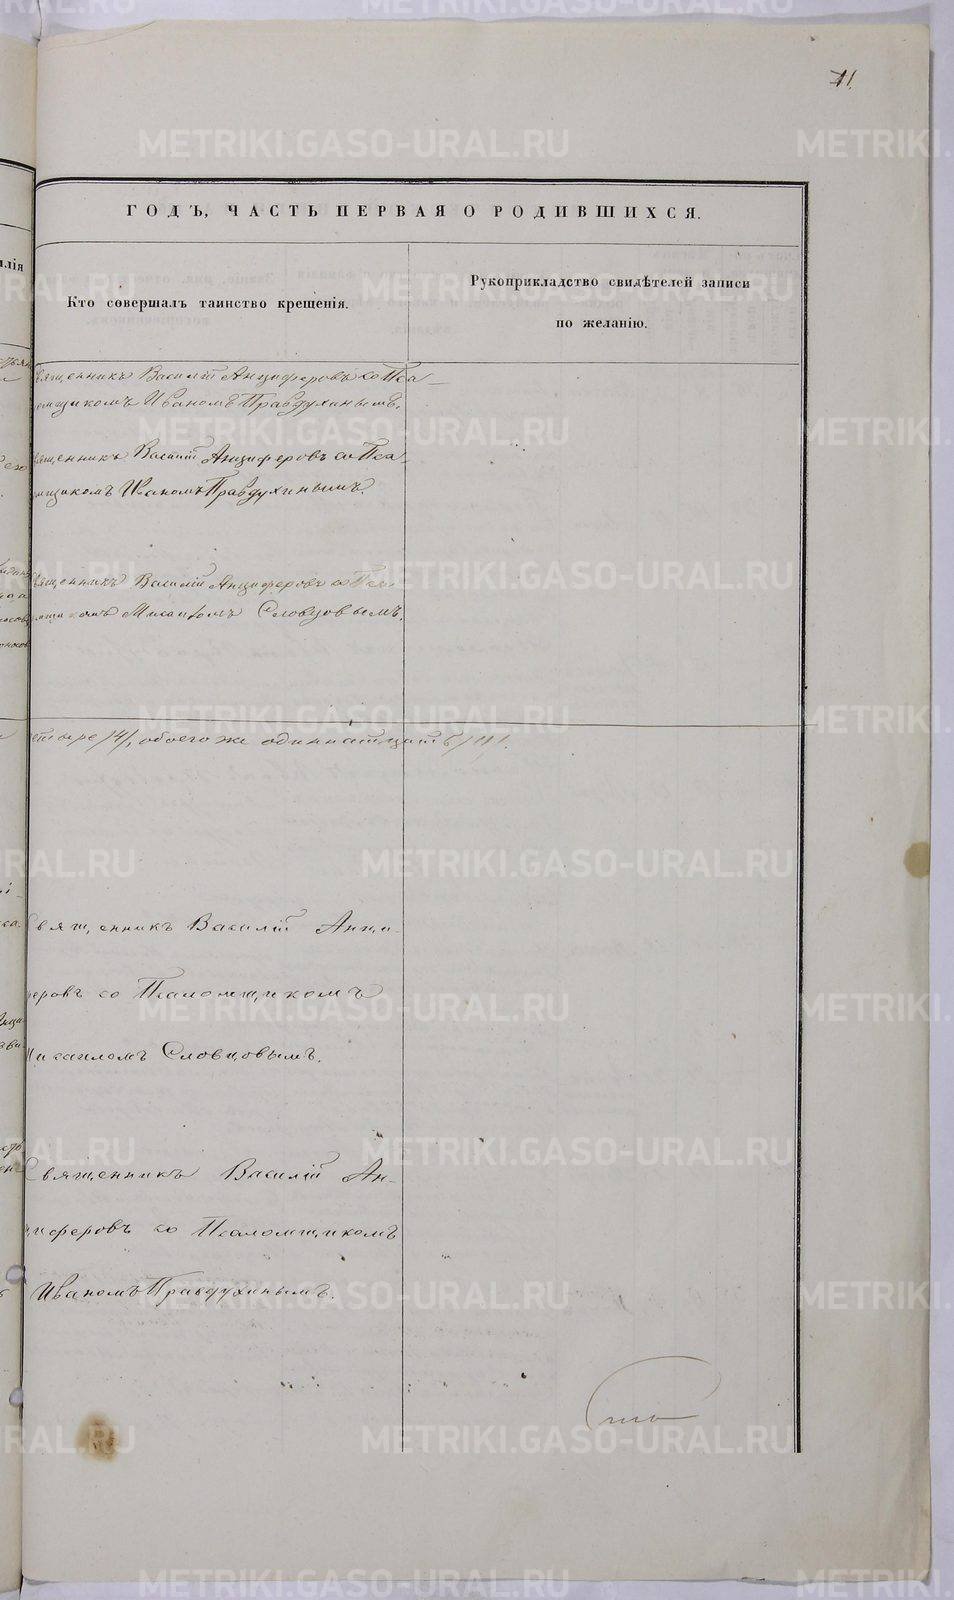 71.
ГОДЪ, ЧАСТЬ ПЕРВАЯ О РОДИВШИХСЯ.
Кто совершалъ таинство крещенія.
Рукоприкладство свидѣтелей записи
по желанію.
Священникъ Василій Анциферовъ со Пса-
ломщикомъ Иваномъ Правдухинымъ.
Священникъ Василій Анциферовъ со Пса-
ломщикомъ Иваномъ Правдухинымъ.
Священникъ Василій Анциферовъ со Пса-
ломщикомъ Мисаиломъ Словцовымъ.
четыре /4/, обоего же одиннатцать /11/.
Священникъ Василій Анци-
феровъ со Псаломщикомъ
Мисаиломъ Словцовымъ.
Священникъ Василій Ан-
циферовъ со Псаломщикомъ
Иваномъ Правдухинымъ.
METRIKI.GASO-URAL.RU